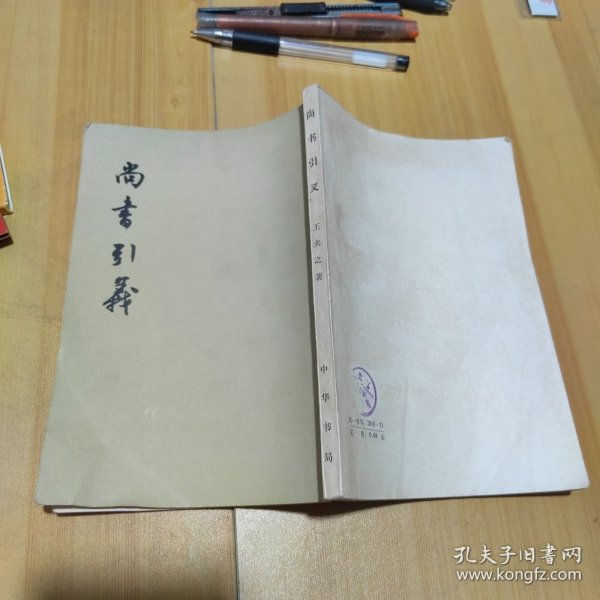 尚書引義
尚书引义
王夫之著
中华书局
统一书号：2018·51
定价：0.48 元
孔夫子旧书网
www.kongfz.com